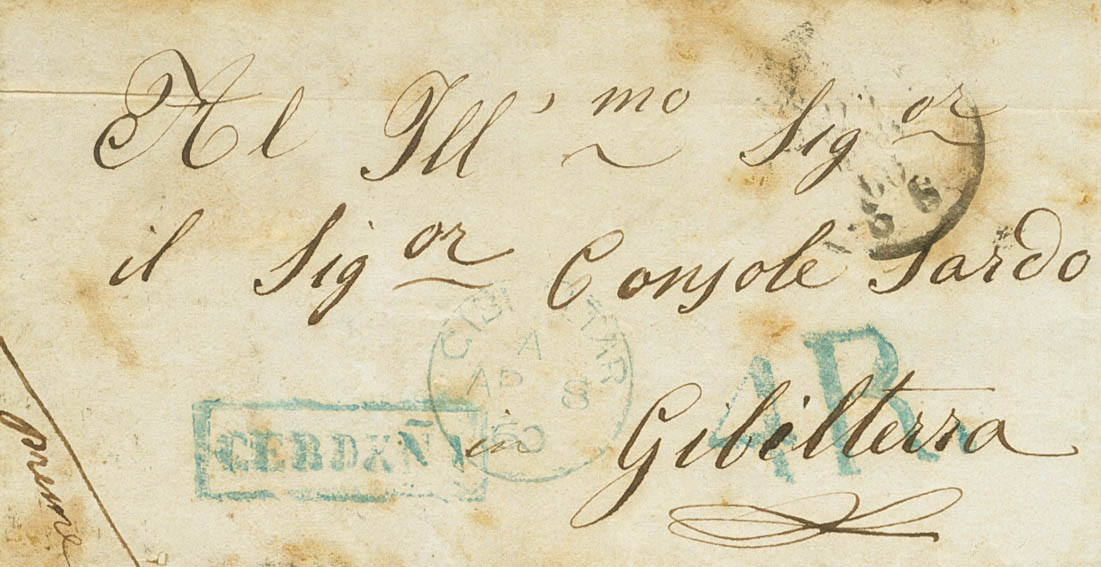 Al Ill'mo Sigor
il Sigor Console Sardo
in Gibilterra
preme
GIBRALTAR
A
AP 8
60
CERDAÑ
4R.